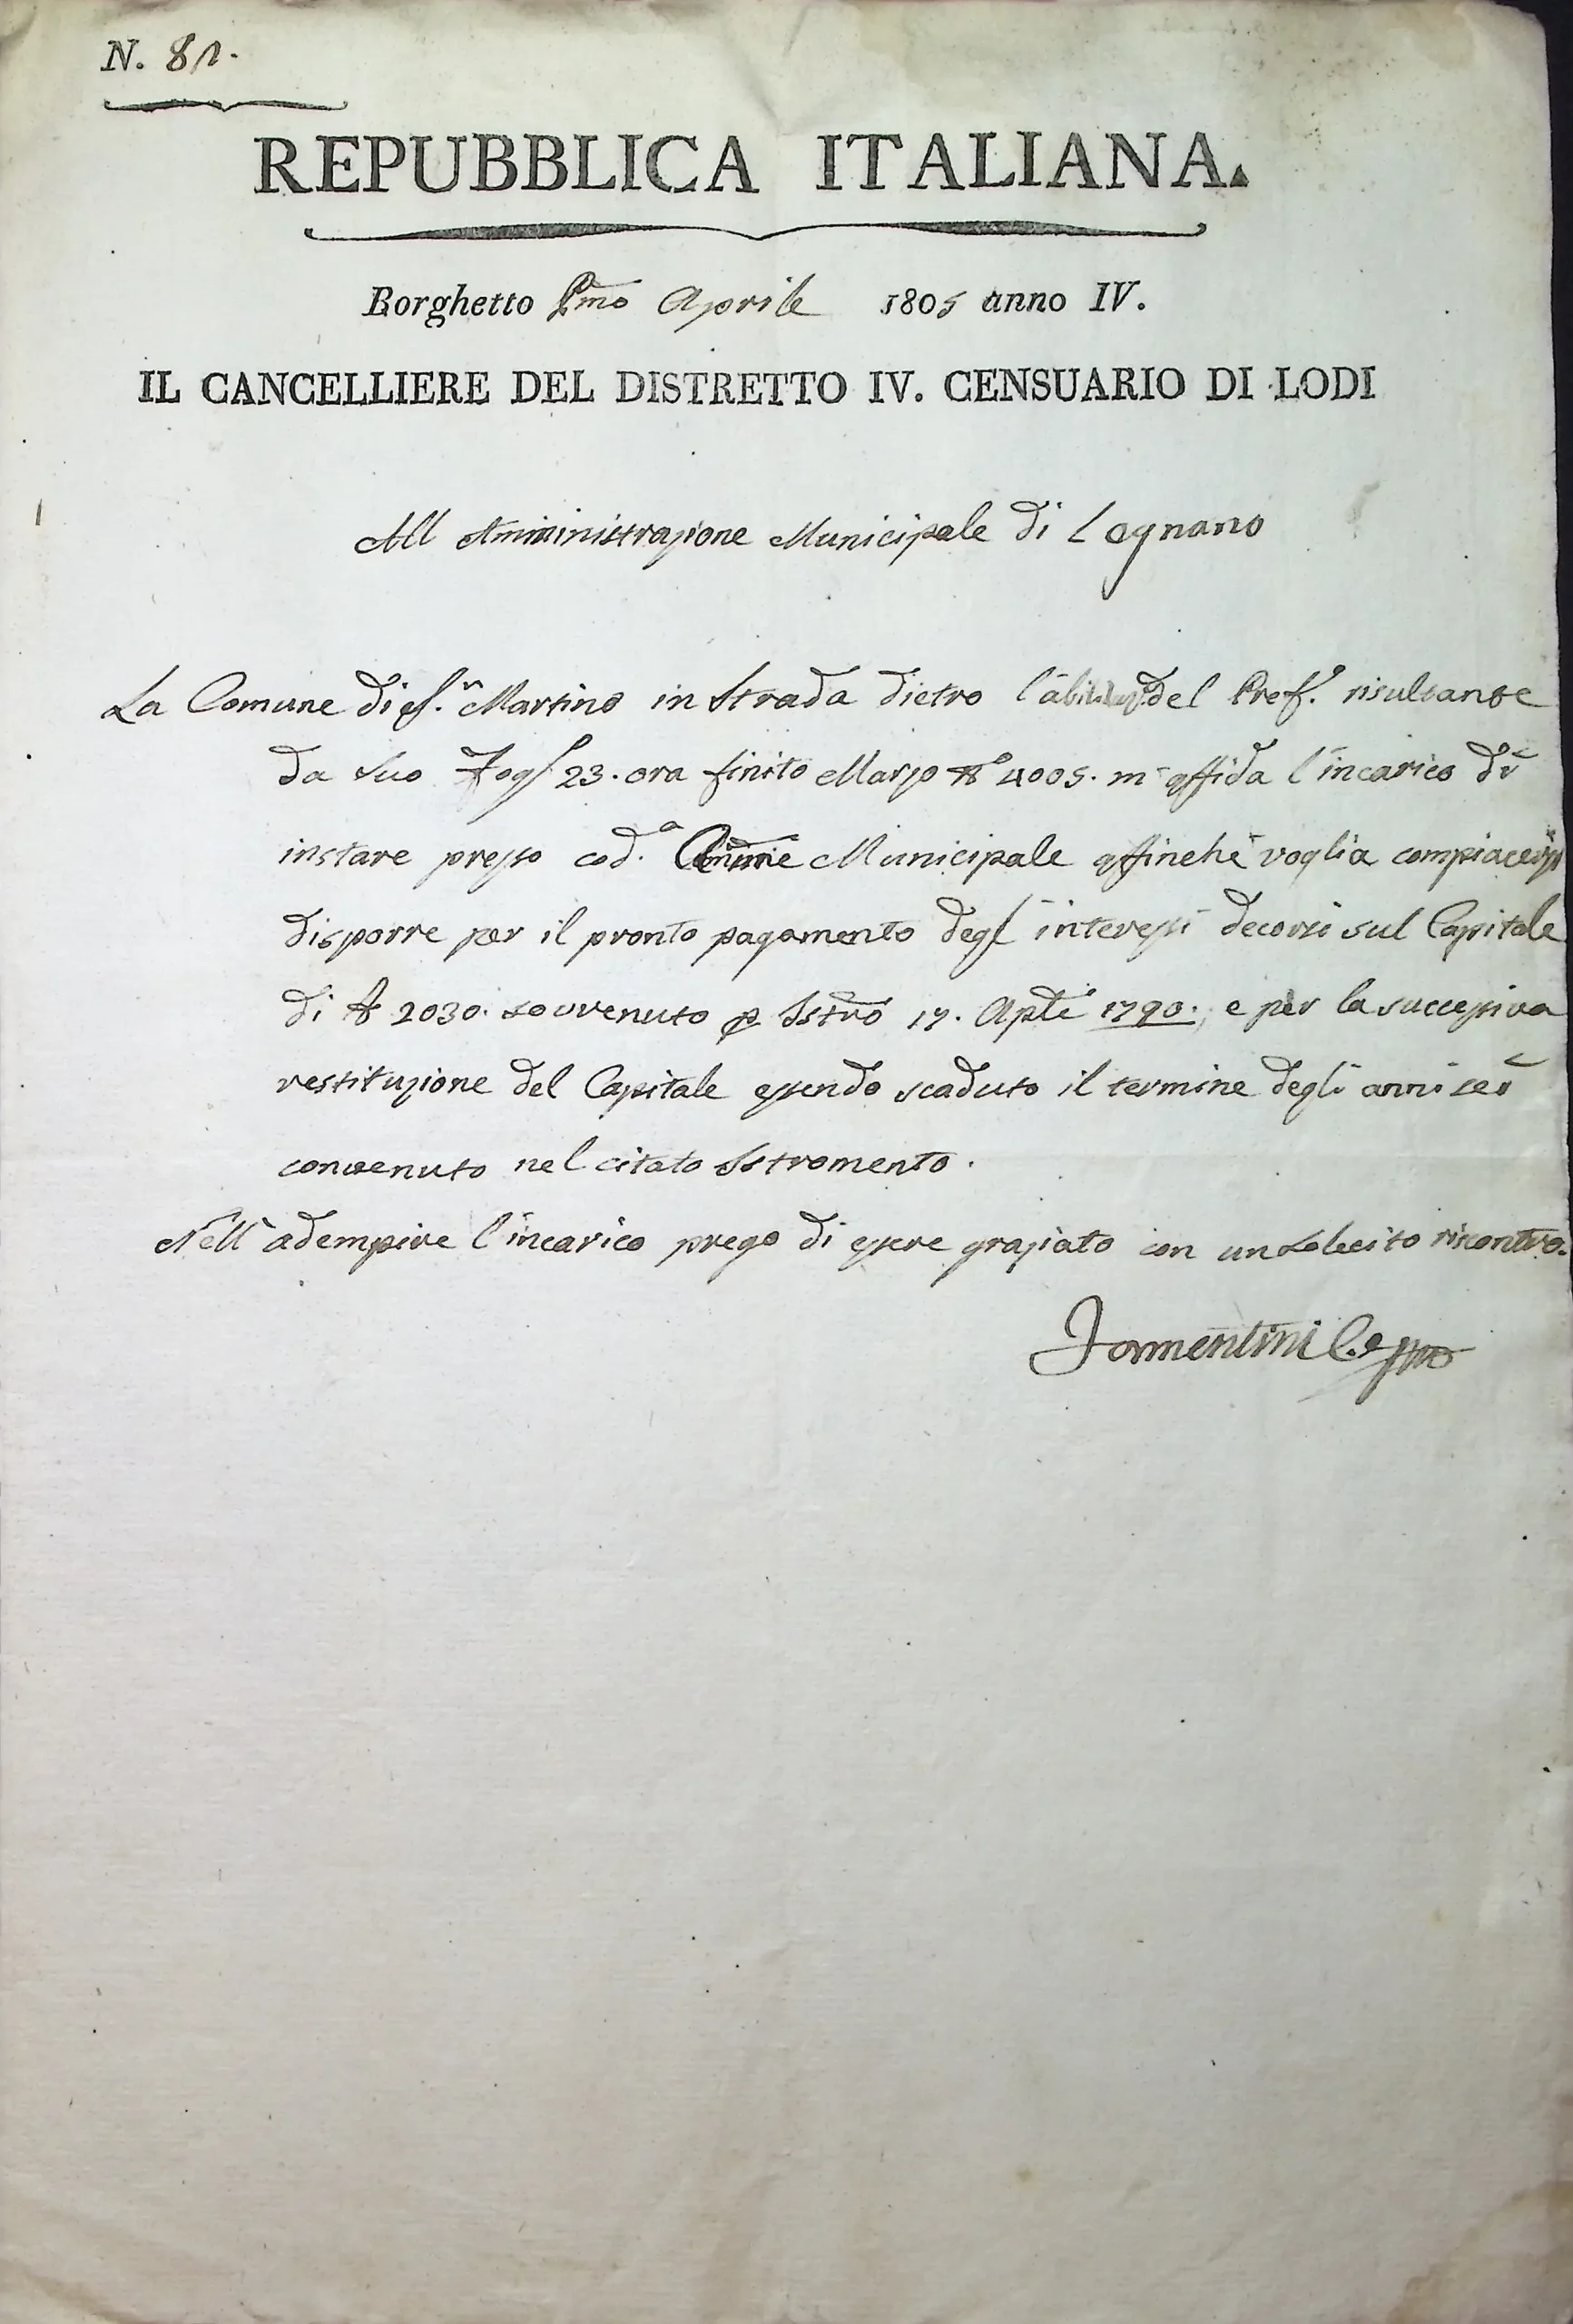 N. 81.
REPUBBLICA ITALIANA.
Borghetto Pmo Aprile 1805 anno IV.
IL CANCELLIERE DEL DISTRETTO IV. CENSUARIO DI LODI
All Amministrazione Municipale di Legnano
La Comune di S.n Martino in Strada dietro l' del Pref.o risultante
da suo Fogl 23. ora finito Marzo N.o 4005. m'affida l'incarico di
instare presso cod.a Municipale affinchè voglia compiacersi
disporre per il pronto pagamento degl' interessi decorsi sul Capitale
di £ 2030. sovvenuto p Istro 17. Aple 1790., e per la successiva
restituzione del Capitale essendo scaduto il termine degli anni sei
convenuto nel citato Istromento.
Nell' adempire l'incarico prego di essere graziato con un solecito riscontro.
Formentini